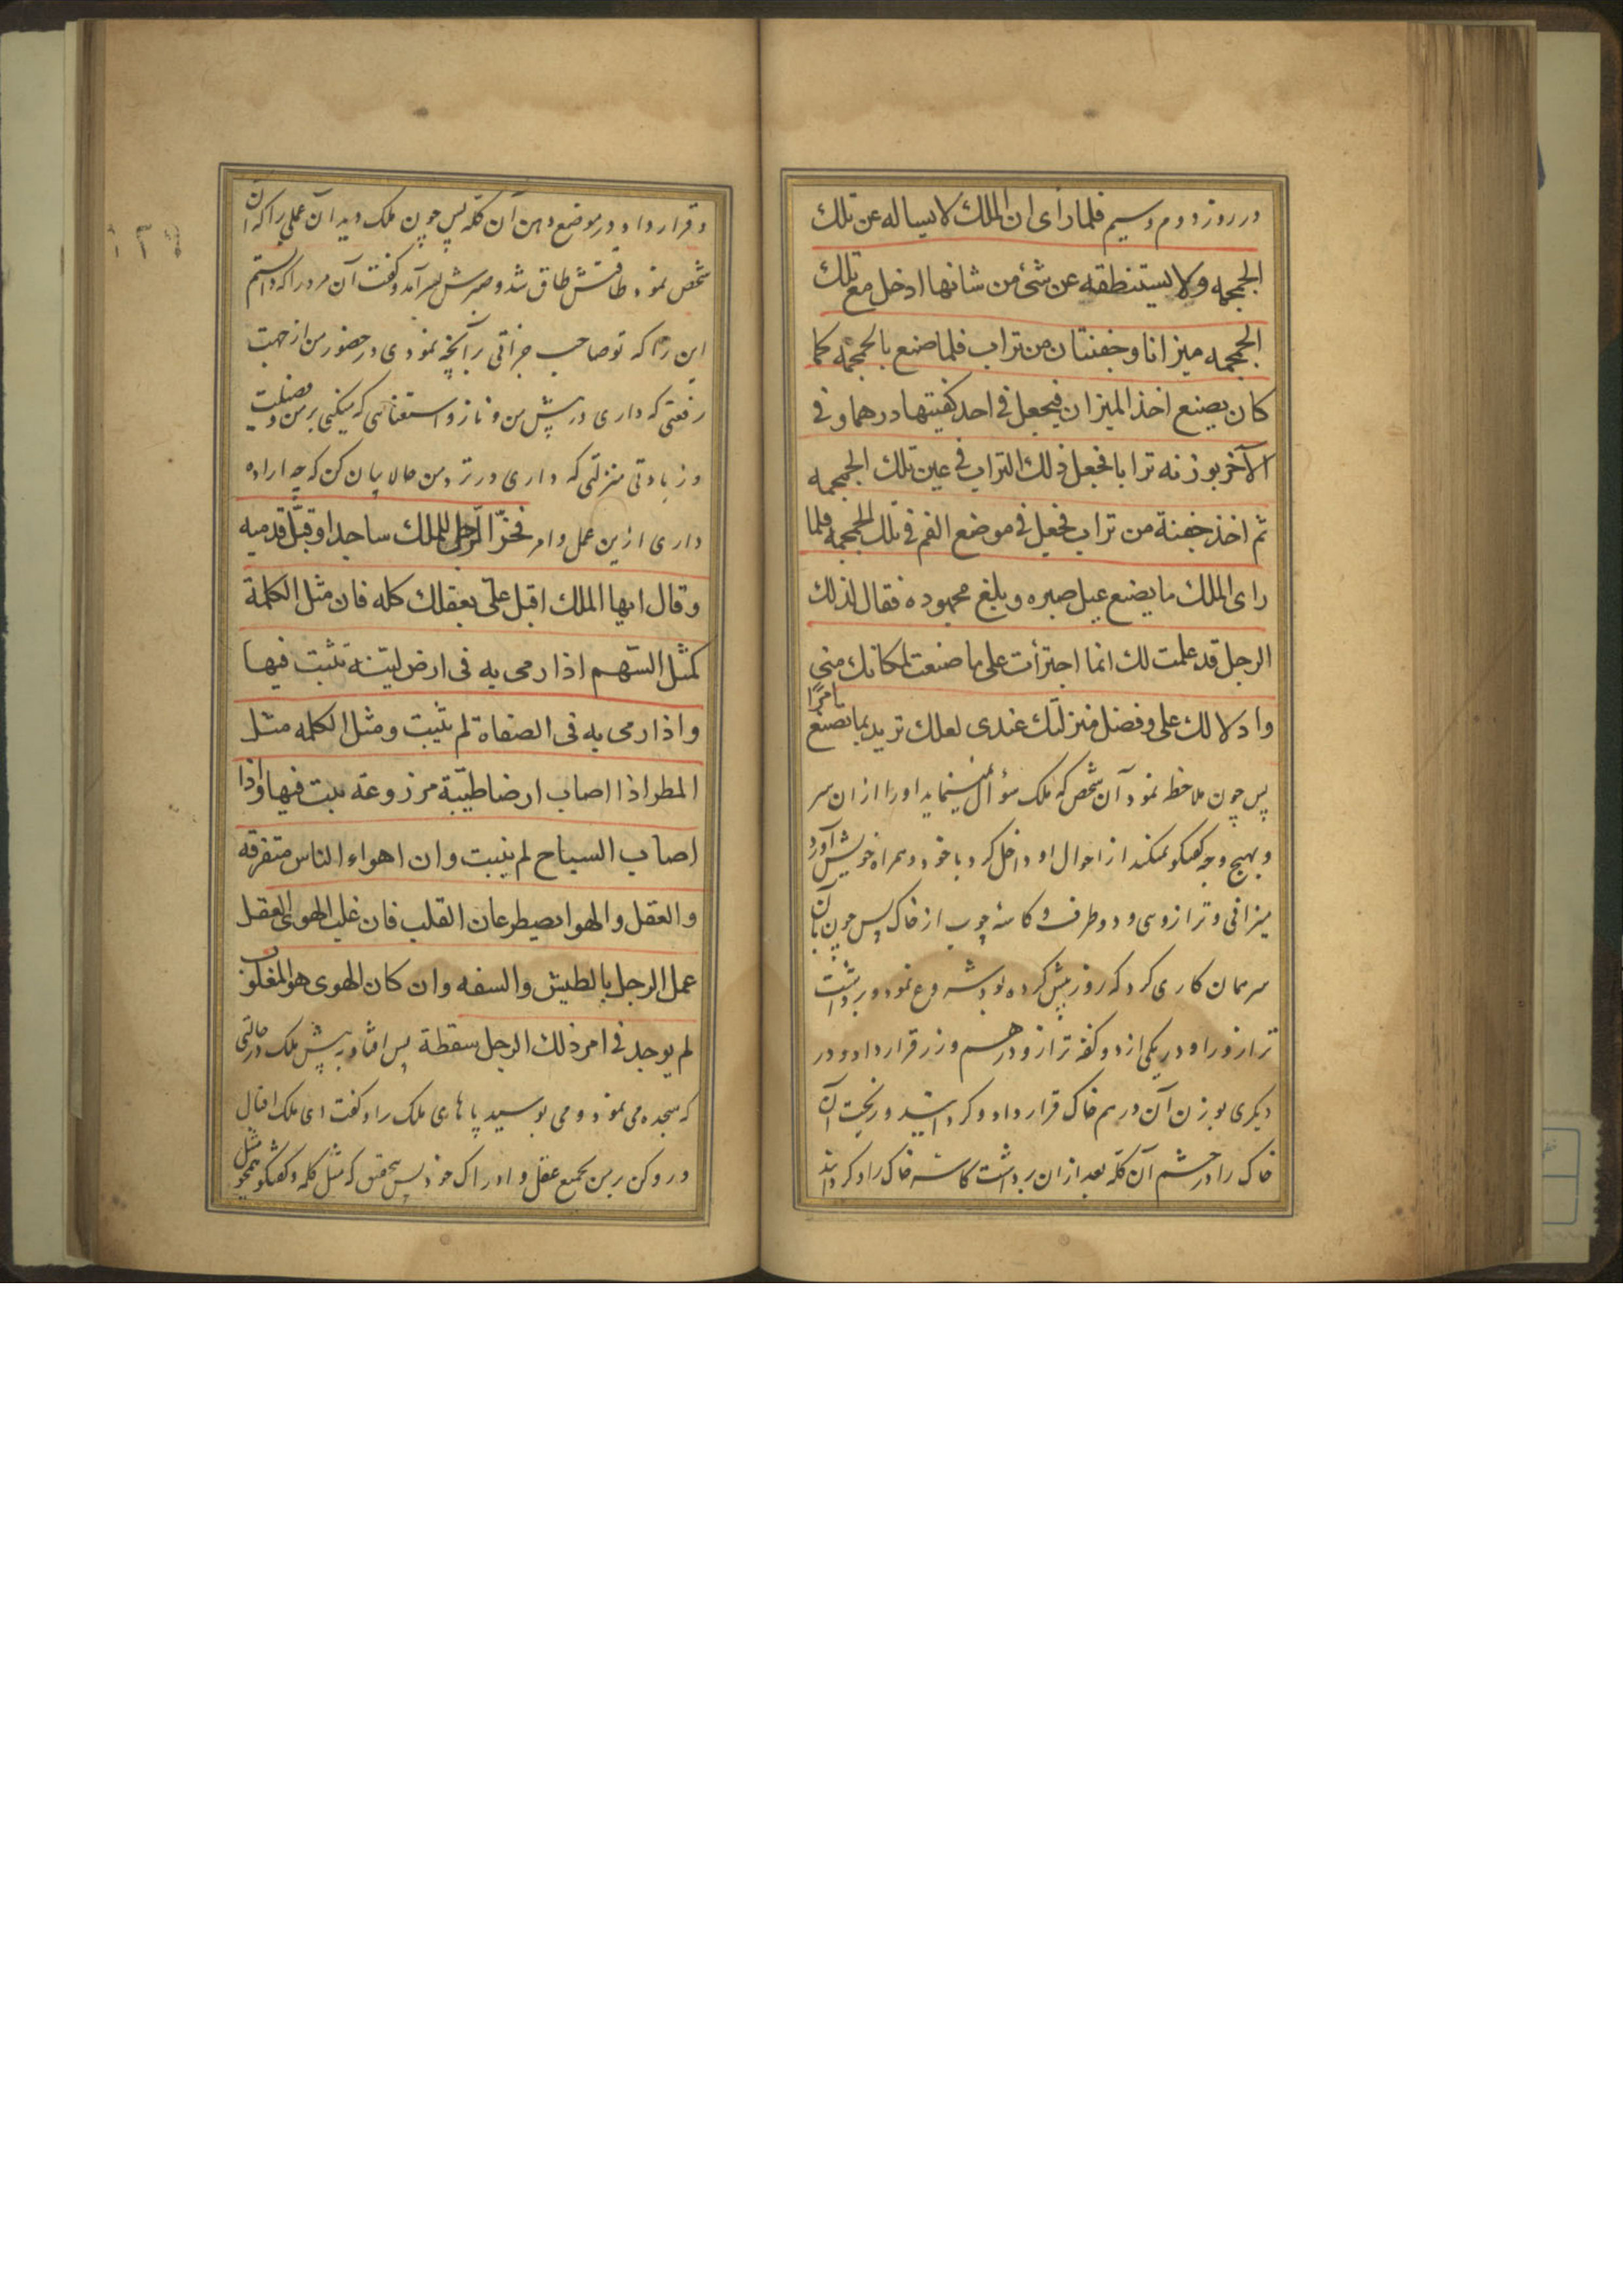 در روز دوم و سیم فلما رأی ان الملك لا یساله عن تلك
الجمجمه ولا یستنطقه عن شئ من شانها ادخل مع تلك
الجمجمه میزانا وجفنتان من تراب فلما صنع بالجمجمه كما
كان یصنع اخذ المیزان فیجعل فی احد كفیتها درهما و فی
الآخر بوزنه ترابا فجعل ذلك التراب فی عین تلك الجمجمه
ثم اخذ جفنة من تراب فجعل فی موضع الفم فی تلك الجمجمه فلما
رای الملك ما یصنع عیل صبره و بلغ مجهوده فقال لذلك
الرجل قد علمت لك انما اجترأت علی ما صنعت لمكانك منی
وادلالك علی وفضل منزلتك عندی لعلك ترید بما تصنع
امرًا
پس چون ملاحظه نمود آن شخص که ملک سؤال نمینماید اورا ازان سر
و بهیچ وجه گفتگو نمیکند از احوال او داخل کرد با خود و همراه خویش آورد
میزانی و ترازوی و دو ظرف و کاسهٔ چوب از خاک پس چون بآن
سر همان کاری کرد که روز پیش کرده بود شروع نمود و برداشت
ترازو را و در یکی از دو کفه ترازو درهم و زر قرار داد و در
دیگری بوزن آن درهم خاک قرار داد و گردانید و ریخت آن
خاک را در چشم آن کله بعد ازان برداشت کاسهٔ خاک را و گردانید
۱۲۹
و قرار داد و در موضع دهن آن کله پس چون ملک دید آن عملی را که آن
شخص نمود طاقتش طاق شد و صبرش بسر آمد و گفت آن مرد را که دانستم
این را که تو صاحب جرأتی بر آنچه نمودی در حضور من از جهت
رفعتی که داری در پیش من و ناز و استغنائی که میکنی بر من و فضیلت
و زیادتی منزلتی که داری در نزد من حالا بیان کن که چه اراده
داری ازین عمل و امر فخرّ الرجل للملك ساجدا وقبّل قدمیه
وقال ایها الملك اقبل علیّ بعقلك كله فان مثل الكلمة
كمثل السّهم اذا رمی به فی ارض لیّنة تثبت فیها
واذا رمی به فی الصفاة لم تثبت ومثل الكلمه مثل
المطر اذا اصاب ارضا طیّبة مزروعة نبت فیها واذا
اصاب السباح لم ینبت وان اهواء الناس متفرقه
والعقل والهوا یصطرعان القلب فان غلب الهوی العقل
عمل الرجل بالطیش والسفه وان كان الهوی هو المغلوب
لم یوجد فی امر ذلك الرجل سقطة پس افتاد به پیش ملک در حالتی
که سجده می نمود و می بوسید پاهای ملک را و گفت ای ملک اقبال
و رو کن بر من بجمیع عقل و ادراک خود پس بتحقیق که مثل کلمه و گفتگو همچو مثل